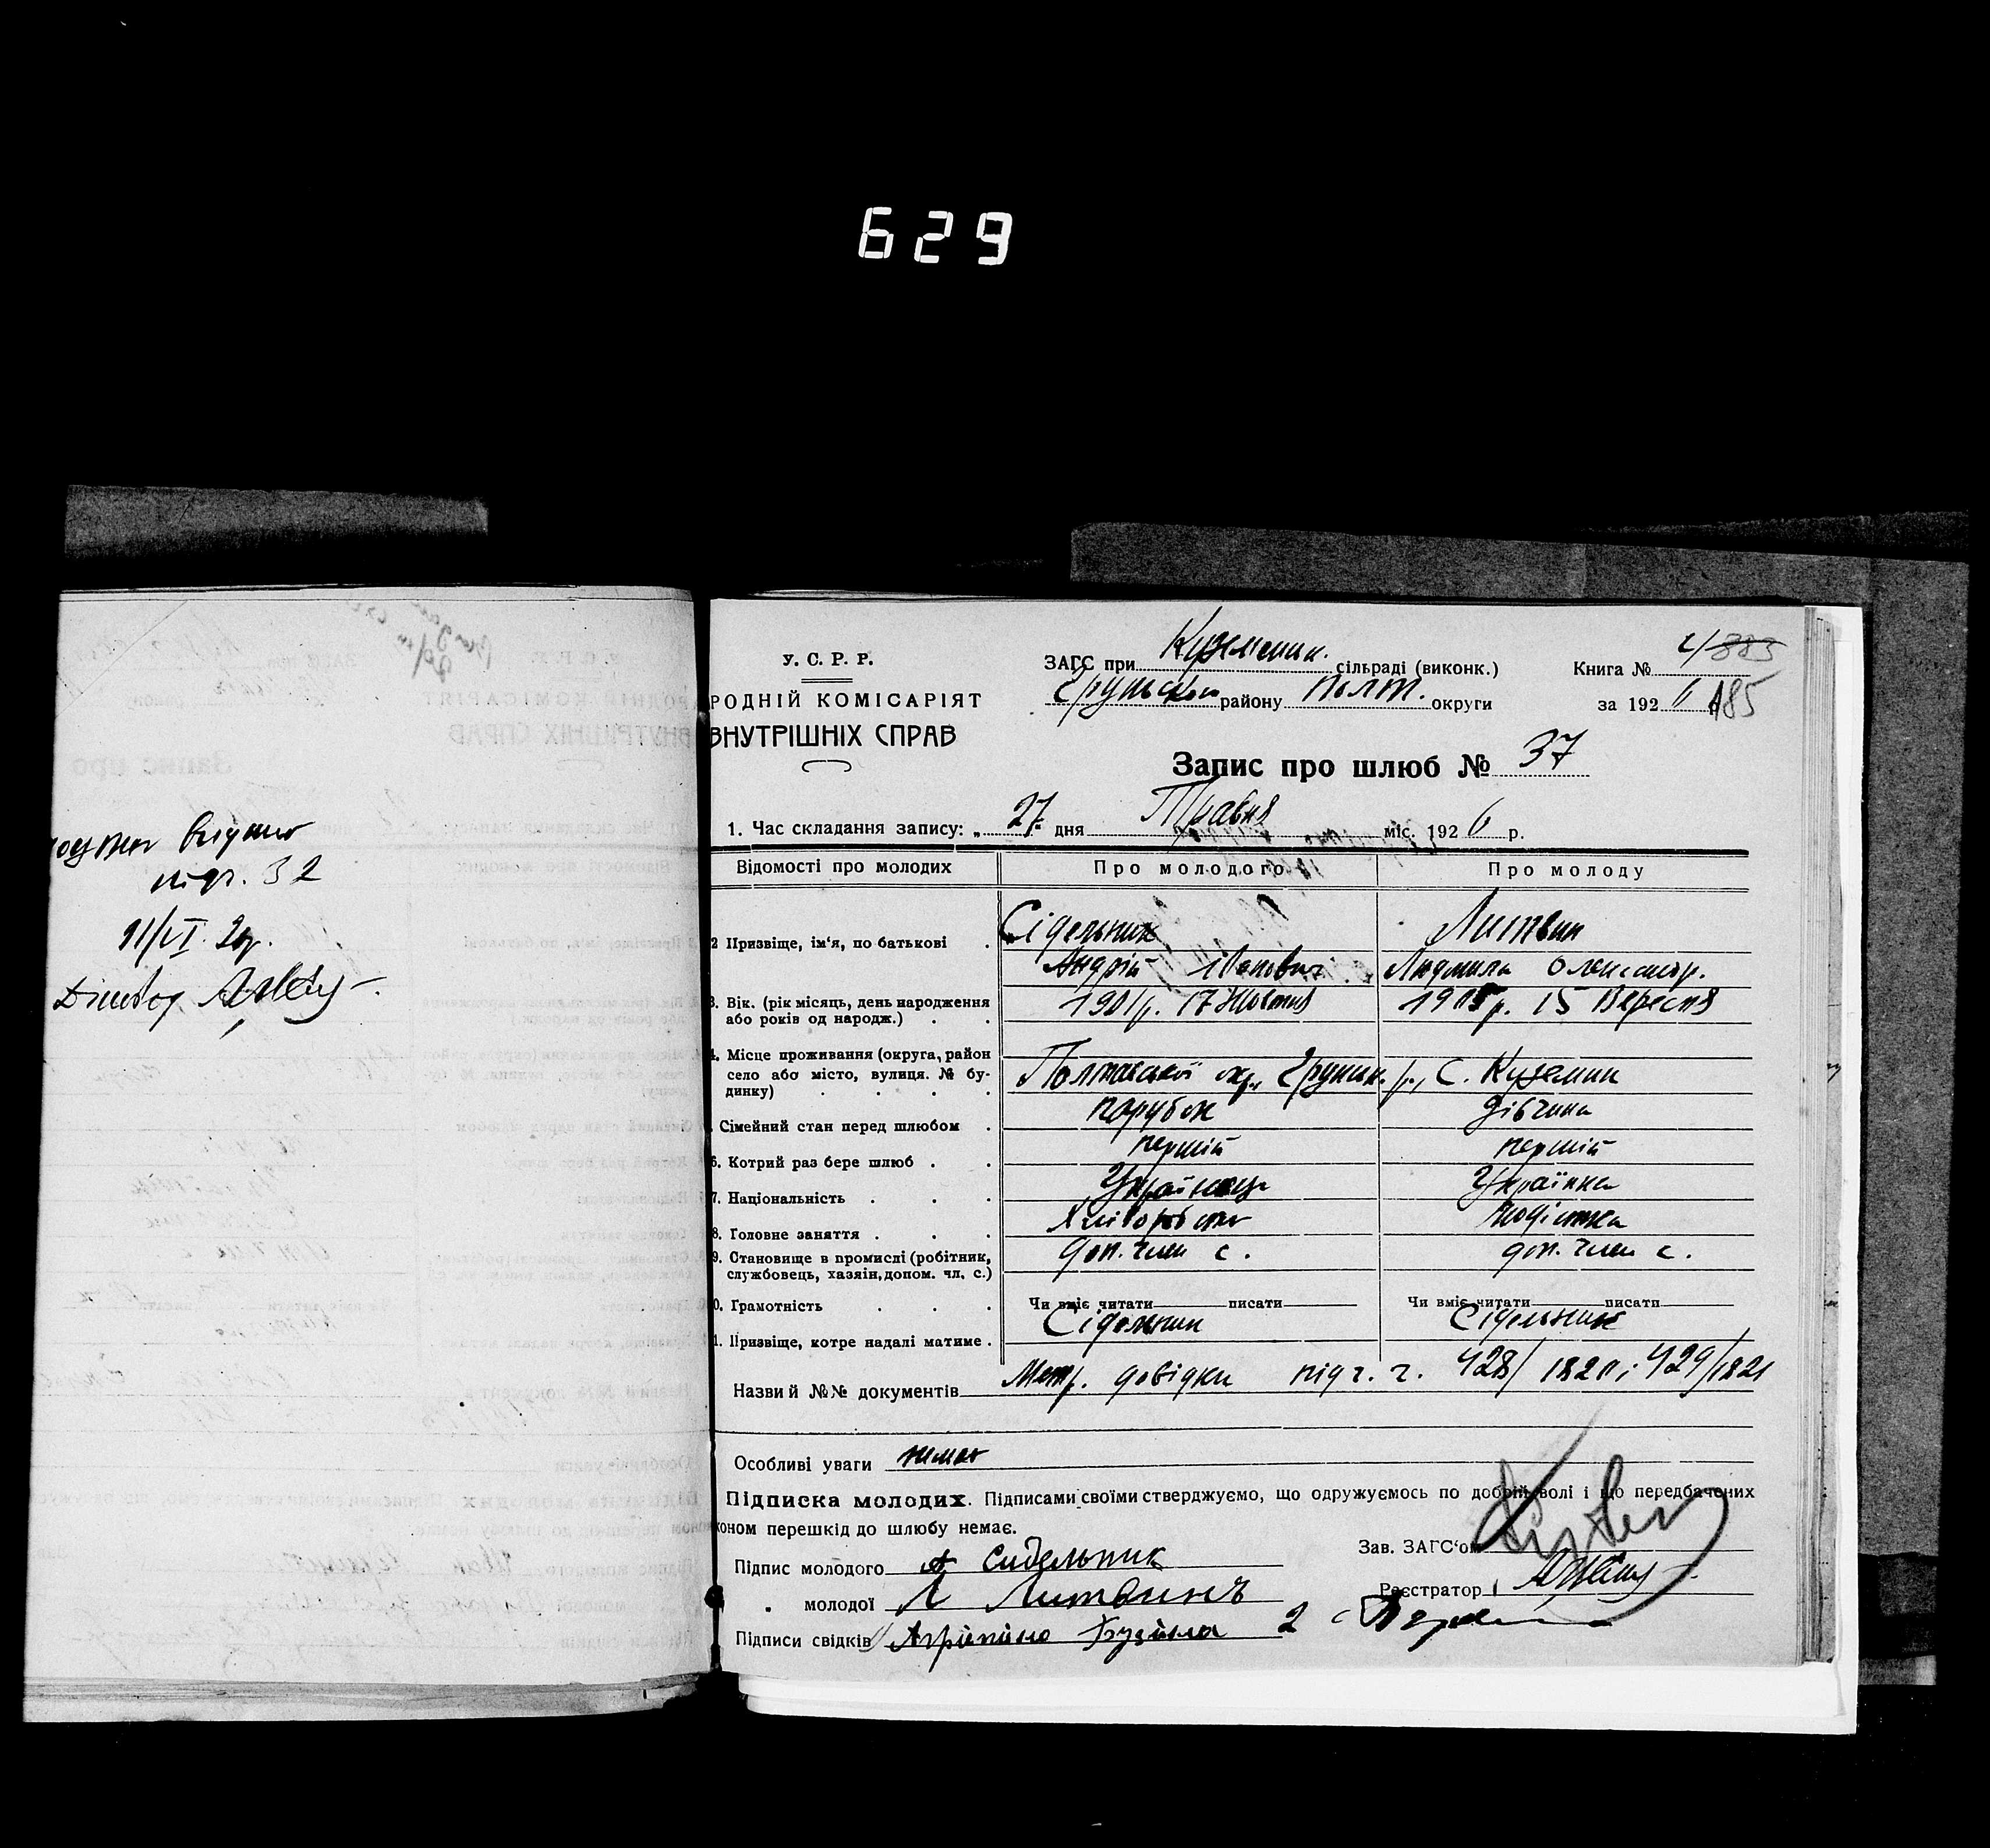 629
підг. 32
У. С. Р. Р.
РОДНІЙ КОМІСАРІЯТ
ВНУТРІШНІХ СПРАВ
ЗАГС при Куземин. сільраді (виконк.)
Грунськ району Полт. округи
Книга № 4/883
за 1926 185
Запис про шлюб № 37
1. Час складання запису: „ 27 " дня Травня міс. 1926 р.
Відомості про молодих Про молодого Про молоду
2 Призвіще, ім'я, по батькові . Сідельник Литвин
Андрій Іванович Людмила Олександр.
3. Вік. (рік місяць, день народження
або років од народж.) . . 1901 р. 17 Жовтня 1905 р. 15 Вересня
4. Місце проживання (округа, район
село або місто, вулиця. № бу-
динку) . . . . Полтавської окр., Грунськ. р., С. Куземин
Сімейний стан перед шлюбом . парубок дівчина
6. Котрий раз бере шлюб . . перший перший
7. Національність . . . Українець Українка
8. Головне заняття . . . Хліборобство модистка
9. Становище в промислі (робітник,
службовець, хазяїн, допом. чл. с.) доп. член с. доп. член с.
0. Грамотність . . . Чи вміє читати писати Чи вміє читати писати
1. Призвіще, котре надалі матиме . Сідельник Сідельник
Назви й №№ документів Метр. довідки під ч. ч. 428/1820 і 429/1821
Особливі уваги немає
Підписка молодих. Підписами своїми стверджуємо, що одружуємось по добрій волі і що передбачених
коном перешкід до шлюбу немає.
Зав. ЗАГС'ом
Підпис молодого А Сидельник
Реєстратор
„ молодої Л Литвинъ
Підписи свідків Агріпіно 2